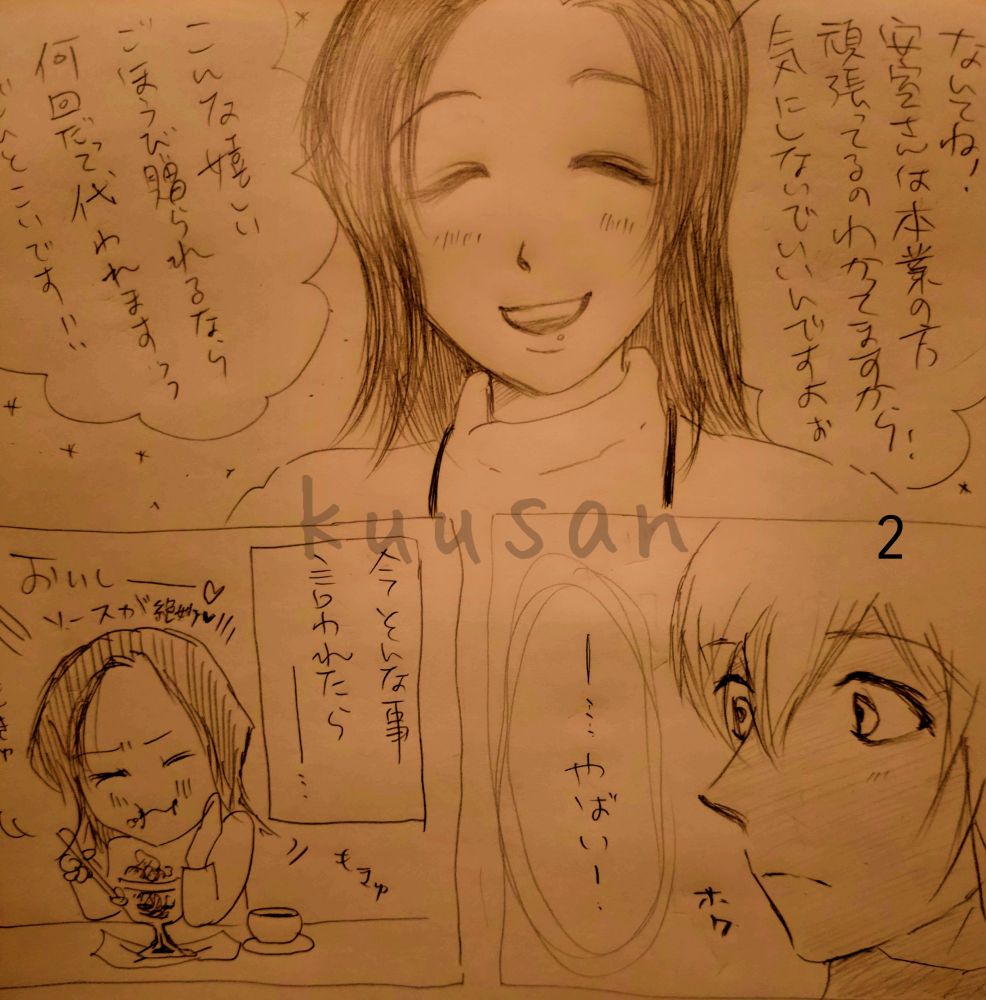 ないてね!
安室さんは本業の方
頑張ってるのわかてますから!
気にしないでいいんですよぉ
こんな嬉しい
ごほうび贈られるなら
何回だって、代われますっっ
どんとこいです!!
2
kuusan
ー……やばいー.
ホワ
今そんな事
言われたら
――…
おいしー♡
ソースが絶妙♡
もきゅ